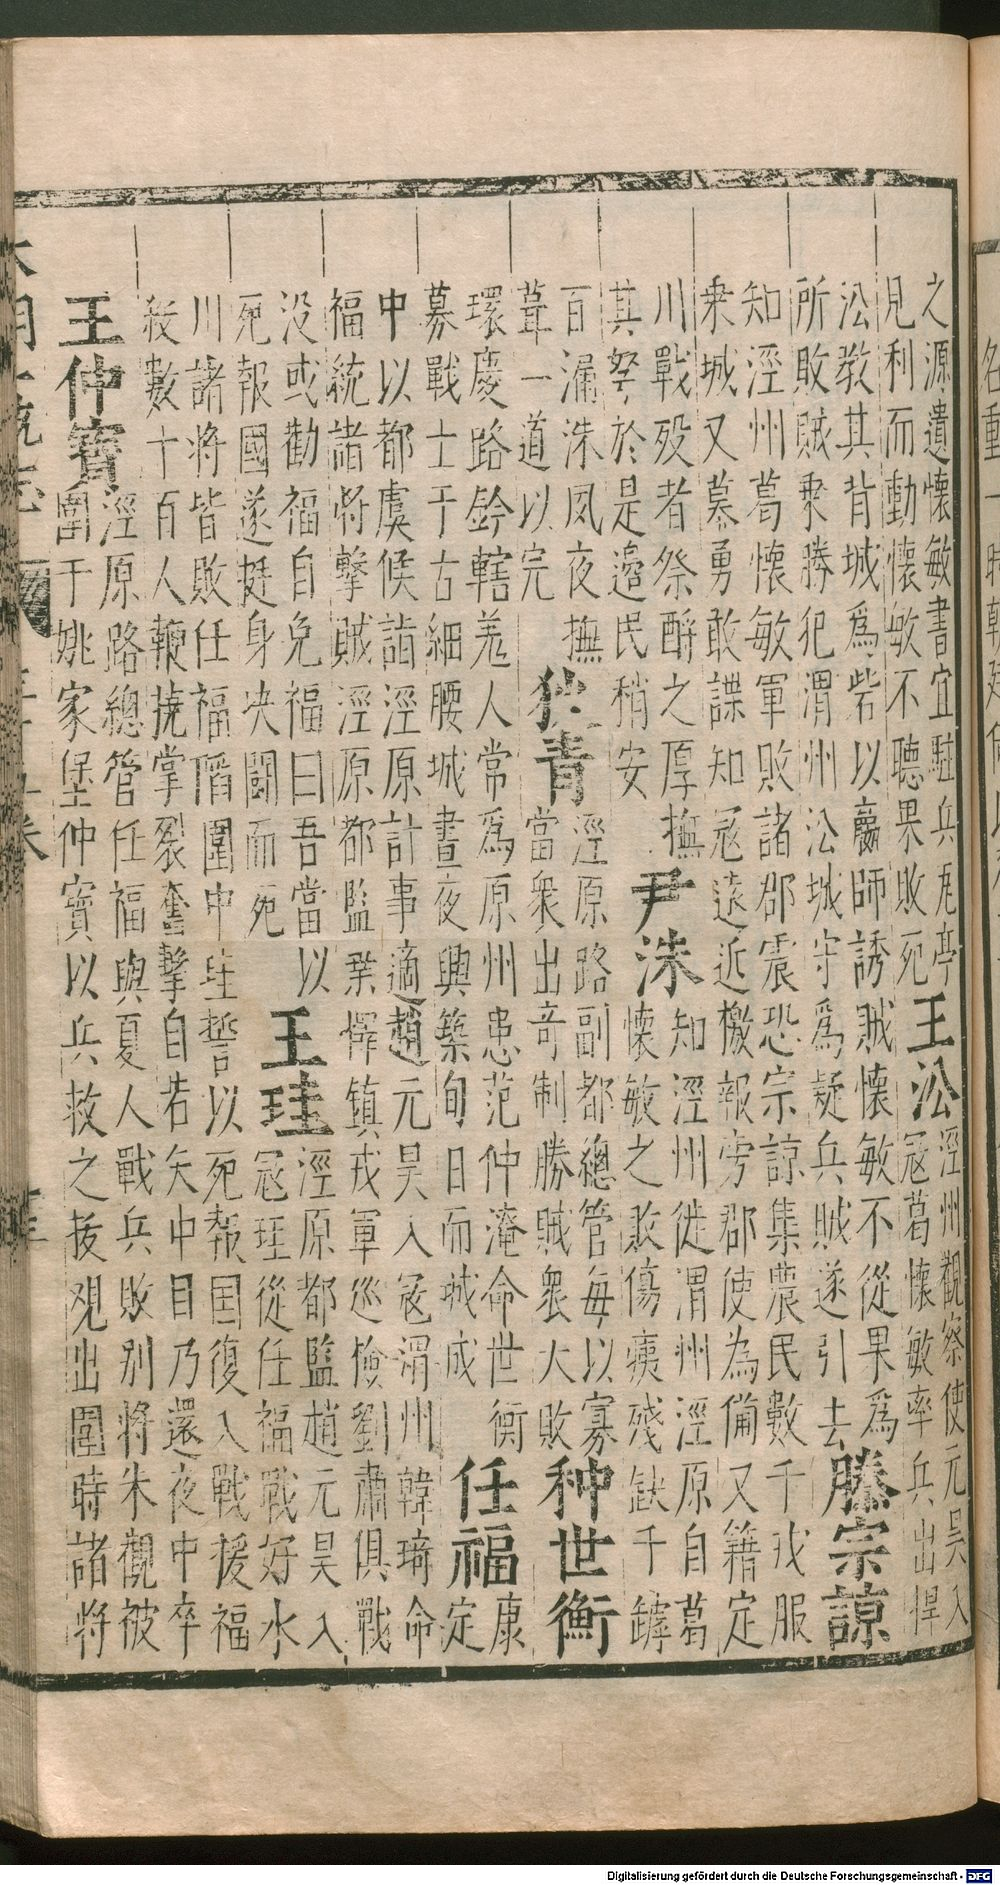 之源遺懷敏書宜駐兵瓦亭
見利而動懷敏不聽果敗死
王沿
涇州觀察使元昊入
寇葛懷敏率兵出捍
沿教其背城爲砦以羸師誘賊懷敏不從果爲
所敗賊乗勝犯渭州沿城守爲疑兵賊遂引去
滕宗諒
知涇州葛懷敏軍敗諸郡震恐宗諒集農民數千戎服
乗城又募勇敢諜知寇遠近檄報旁郡使為備又籍定
川戰歿者祭酹之厚撫
其孥於是邉民稍安
尹洙
知涇州徙渭州涇原自葛
懷敏之敗傷痍殘缺千罅
百漏洙夙夜撫
葺一道以完
狄青
涇原路副都總管每以寡
當衆出奇制勝賊衆大敗
种世衡
環慶路鈐轄羗人常爲原州患范仲淹命世衡
募戰士于古細腰城晝夜興築旬日而城成
任福
康
定
中以都虞候詣涇原計事適趙元昊入寇渭州韓琦命
福統諸將擊賊涇原都監桒懌鎮戎軍巡儉劉肅俱戰
没或勸福自免福曰吾當以
死報國遂挺身决闘而死
王珪
涇原都監趙元昊入
寇珪從任福戰好水
川諸將皆敗任福陷圍中珪誓以死報国復入戰援福
殺數十百人鞭撓掌裂奮擊自若矢中目乃還夜中卒
王仲寳
涇原路總管任福與夏人戰兵敗别將朱觀被
圍于姚家堡仲寳以兵救之拔观出圍時諸將
Digitalisierung gefördert durch die Deutsche Forschungsgemeinschaft - DFG